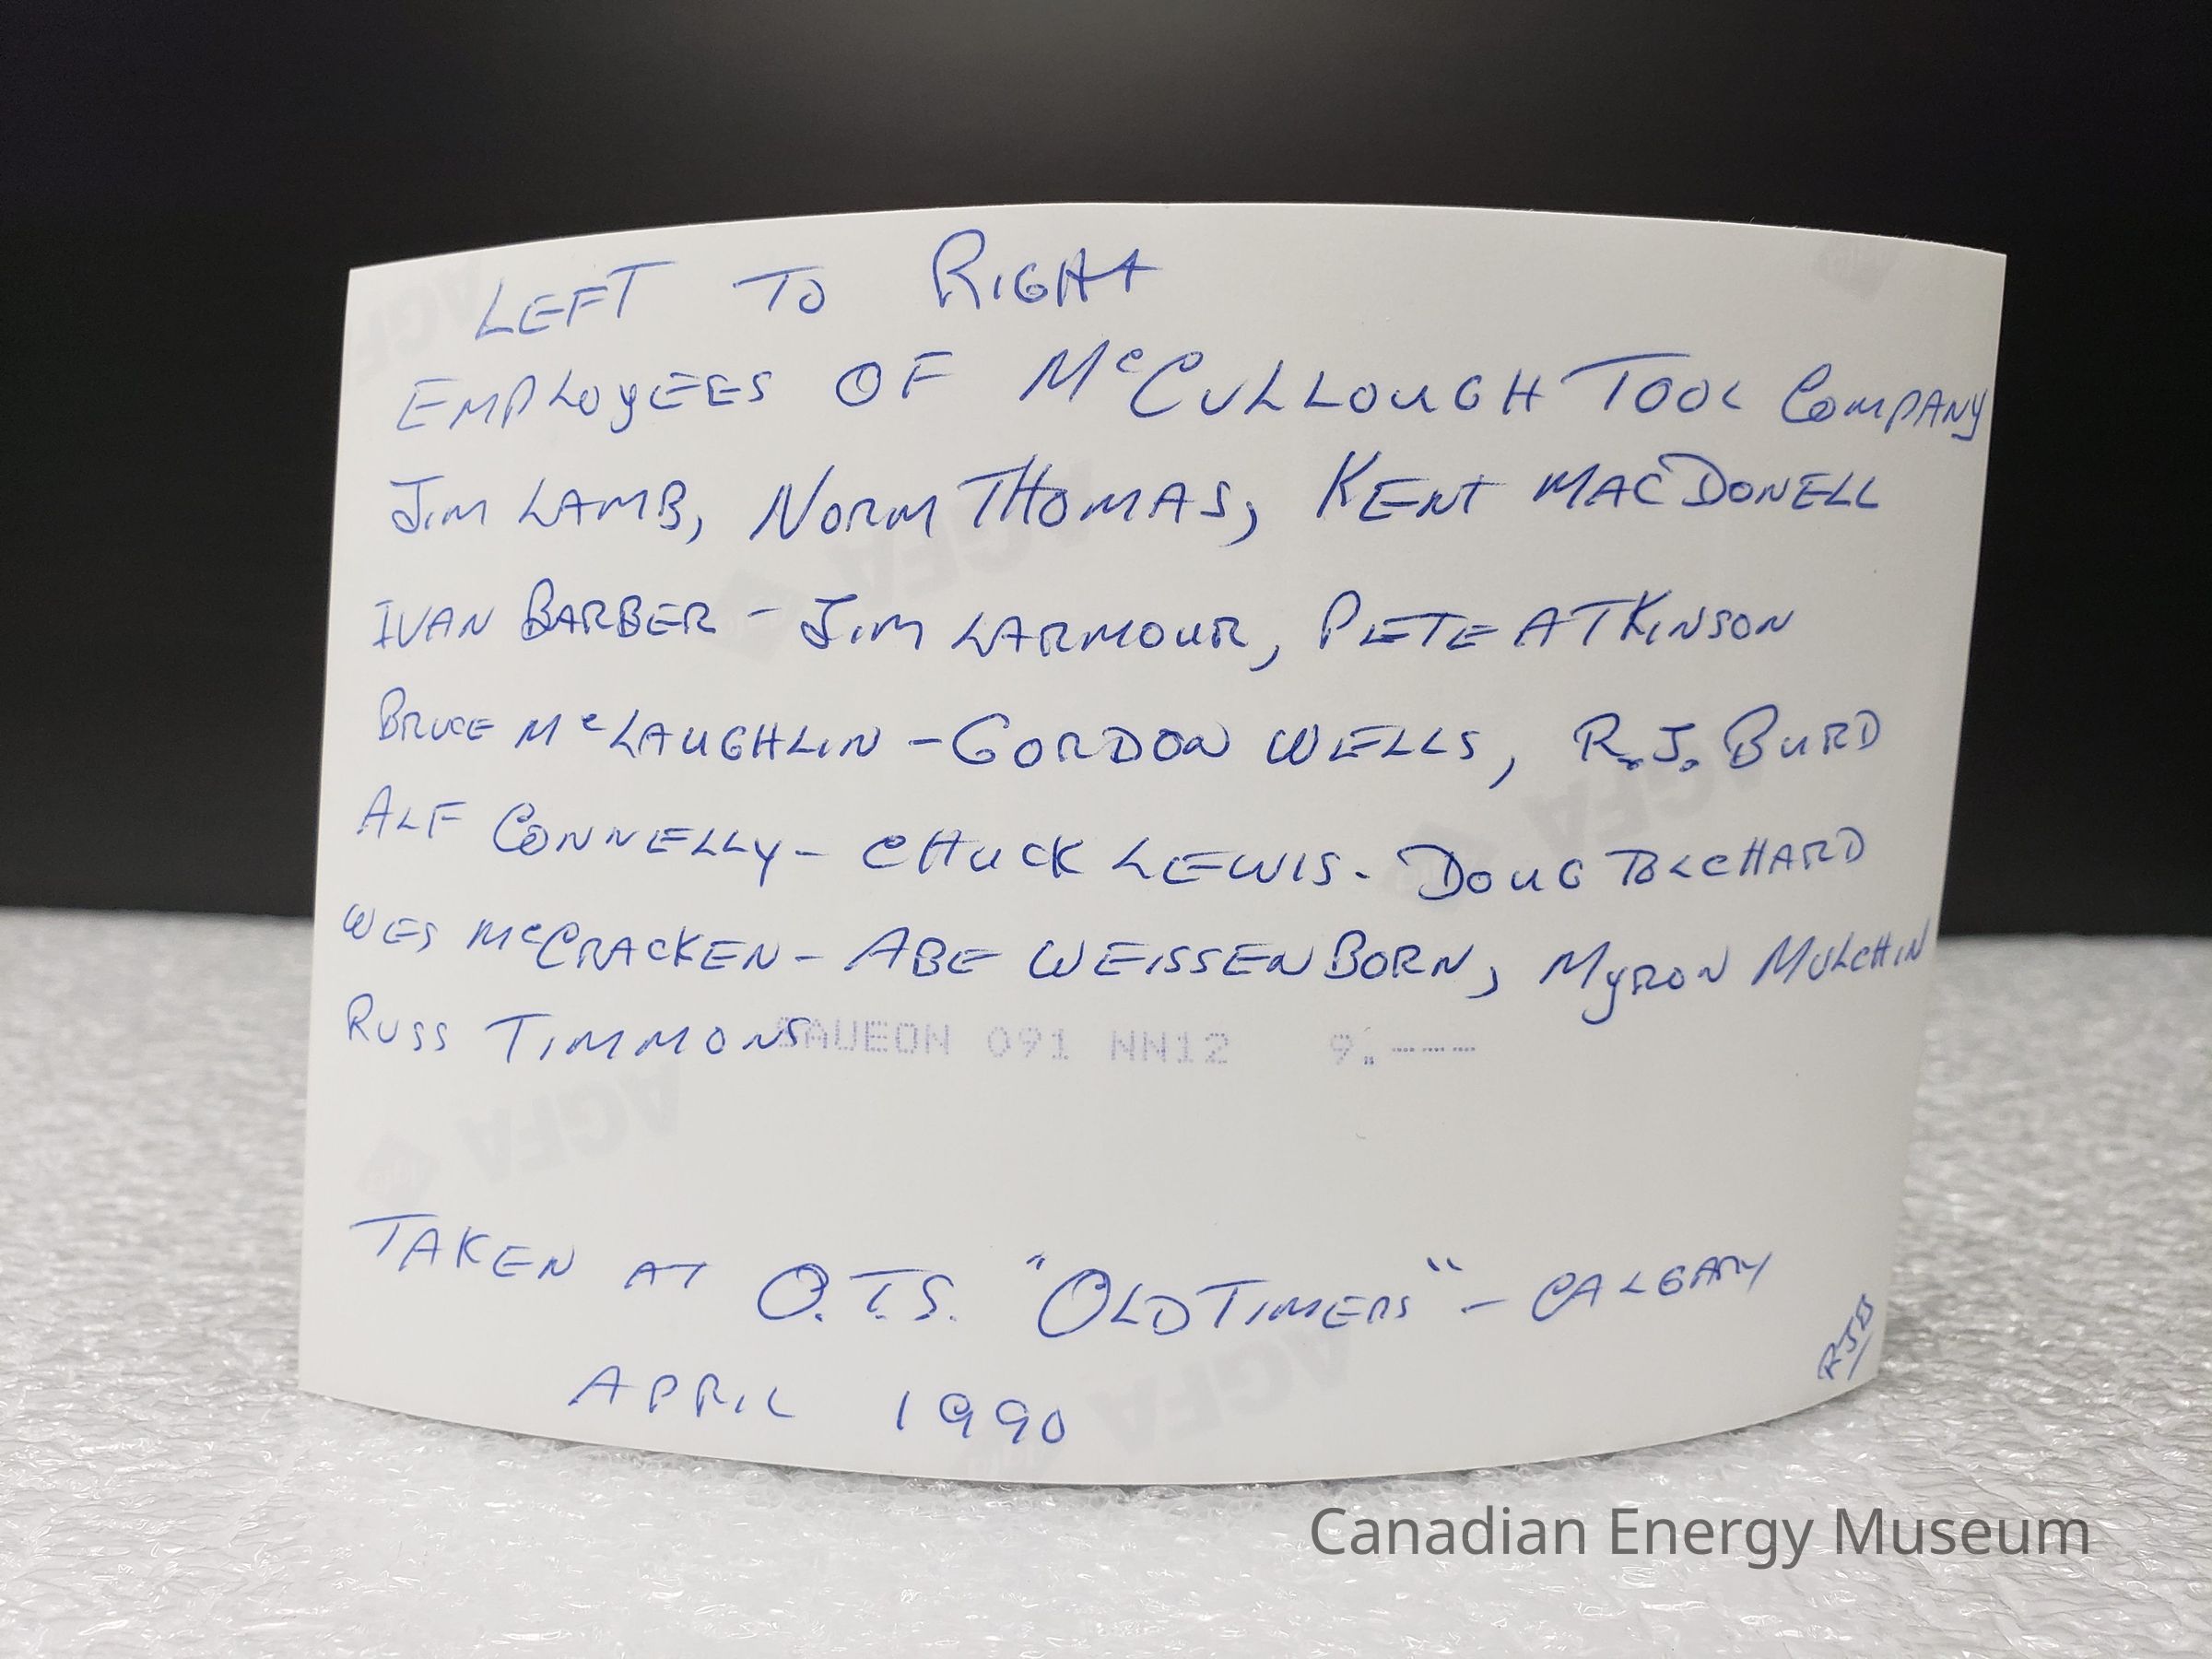 LEFT TO RIGHT
EMPLOYEES OF McCULLOUGH TOOL COMPANY
JIM LAMB, NORM THOMAS, KENT MACDONELL
IVAN BARBER - JIM LARMOUR, PETE ATKINSON
BRUCE McLAUGHLIN - GORDON WELLS, R.J. BURD
ALF CONNELLY - CHUCK LEWIS - DOUG
WES McCRACKEN - ABE WEISSENBORN, MYRON MULCHIN
RUSS TIMMONS
091 NN12 9
AGFA
TAKEN AT O.T.S. "OLD TIMERS" - CALGARY
RJB
APRIL 1990
Canadian Energy Museum